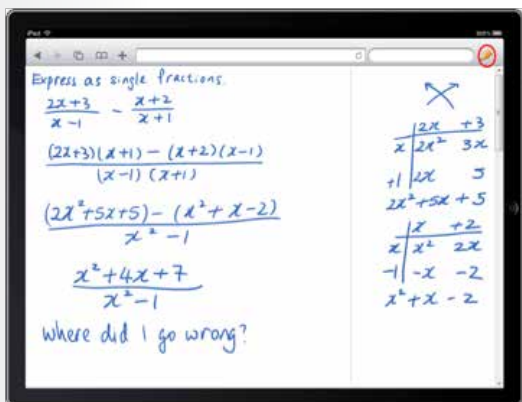 iPad
Express as single fractions.
(2x+3)/(x-1) - (x+2)/(x+1)
((2x+3)(x+1) - (x+2)(x-1))/((x-1)(x+1))
((2x²+5x+5) - (x²+x-2))/(x²-1)
(x²+4x+7)/(x²-1)
where did I go wrong?
2x +3
x 2x² 3x
+1 2x 5
2x²+5x+5
x +2
x x² 2x
-1 -x -2
x²+x-2